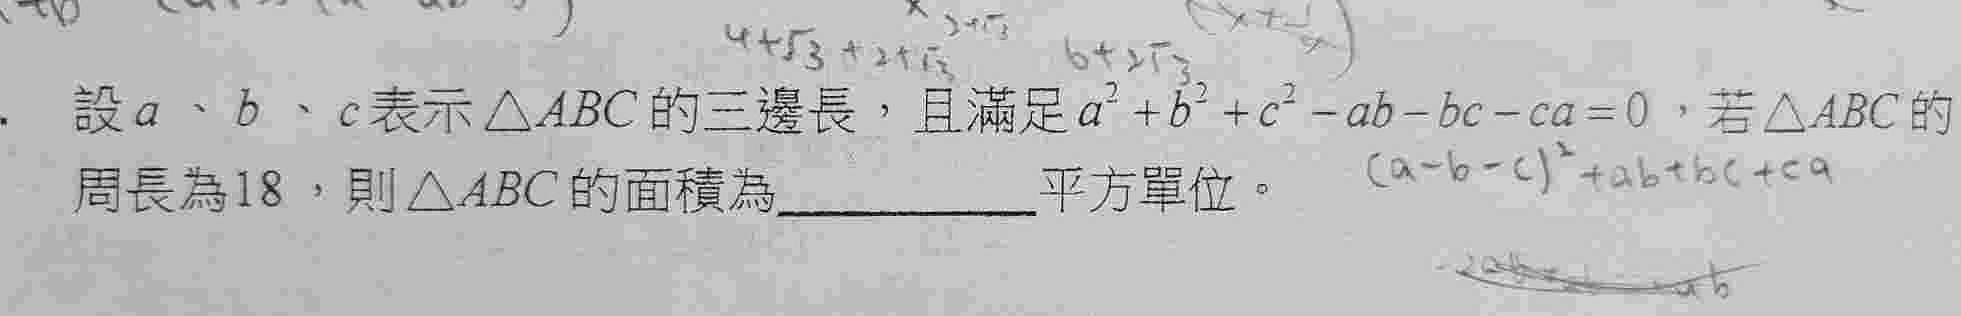 4+√3+2+√3
2+√3
6+2√3
設a、b、c表示△ABC的三邊長，且滿足a²+b²+c²−ab−bc−ca=0，若△ABC的
周長為18，則△ABC的面積為__________平方單位。
(a-b-c)²+ab+bc+ca